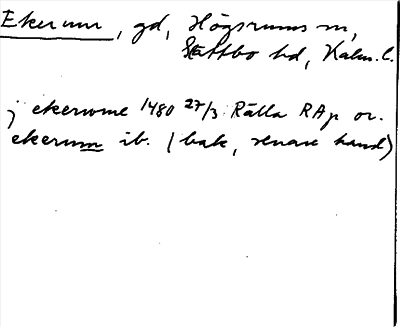 Ekerum, gd, Högsrums sn,
Slättbo hd, Kalm. l.
j ekerwme 1480 27/3 Rälla RAp or.
ekerum ib. (bak, senare hand)